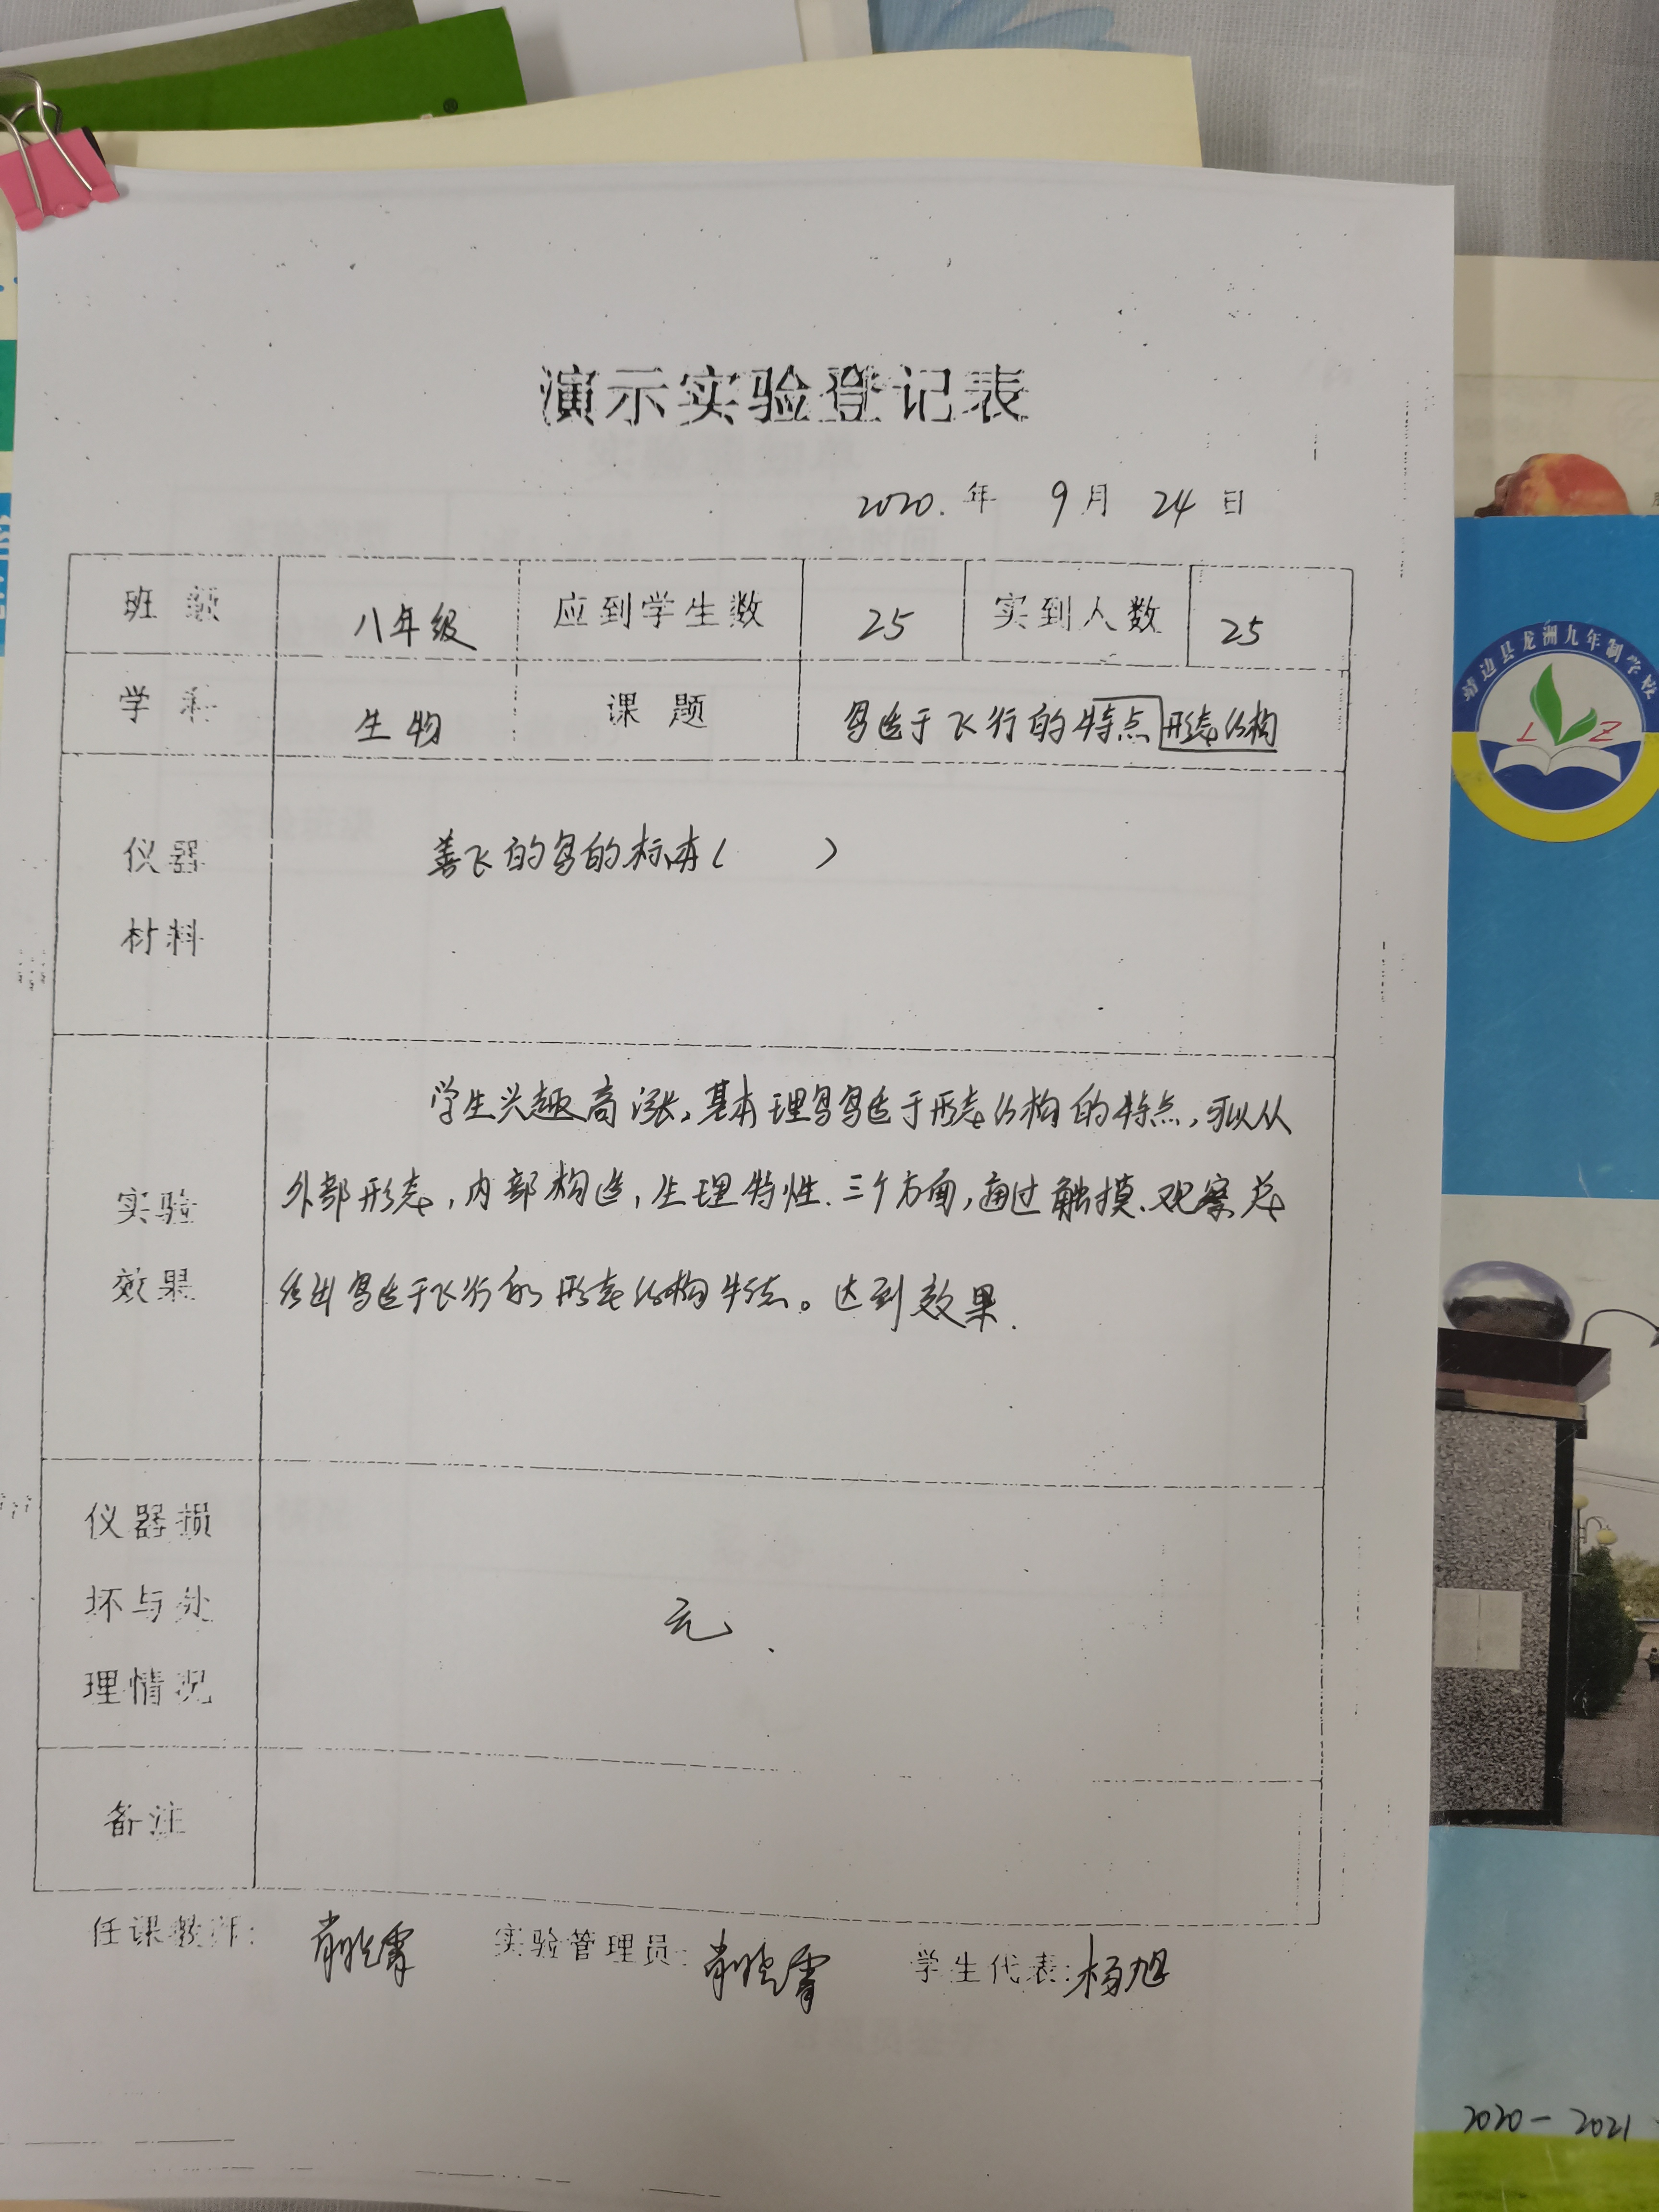 演示实验登记表
2020.年 9月 24日
班级 八年级 应到学生数 25 实到人数 25
学科 生物 课题 鸟适于飞行的特点形态结构
仪器
材料
善飞的鸟的标本( )
实验
效果
学生兴趣高涨,基本理 鸟适于形态结构的特点,可以从
外部形态,内部构造,生理特性.三个方面,通过触摸、观察总
鸟适于飞行的形态结构特点。达到效果.
仪器损
坏与处
理情况
无.
备注
任课教师: 肖晓霄 实验管理员: 肖晓霄 学生代表: 杨旭
靖边县龙洲九年制学校
L Z
2020-2021